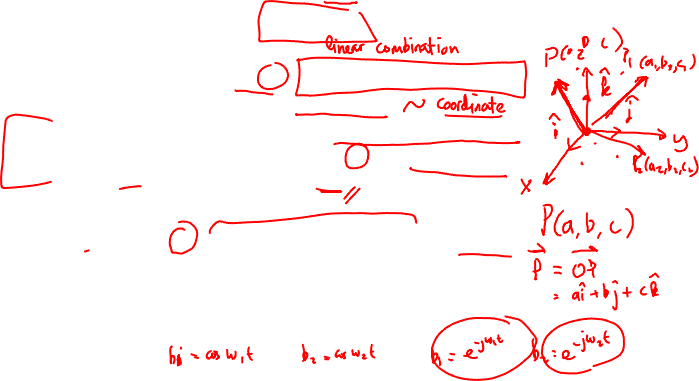 linear combination
~ coordinate
P(a, b, c)
P₁(a₁,b₂,c₁)
k̂
î
ĵ
x
y
P₂(a₂,b₂,c₂)
P(a,b,c)
P⃗ = OP⃗
= aî+bĵ+ck̂
= cos w₁t
b₂ = cos w₂t
b₁ = e^{-jw₁t}
= e^{-jw₂t}